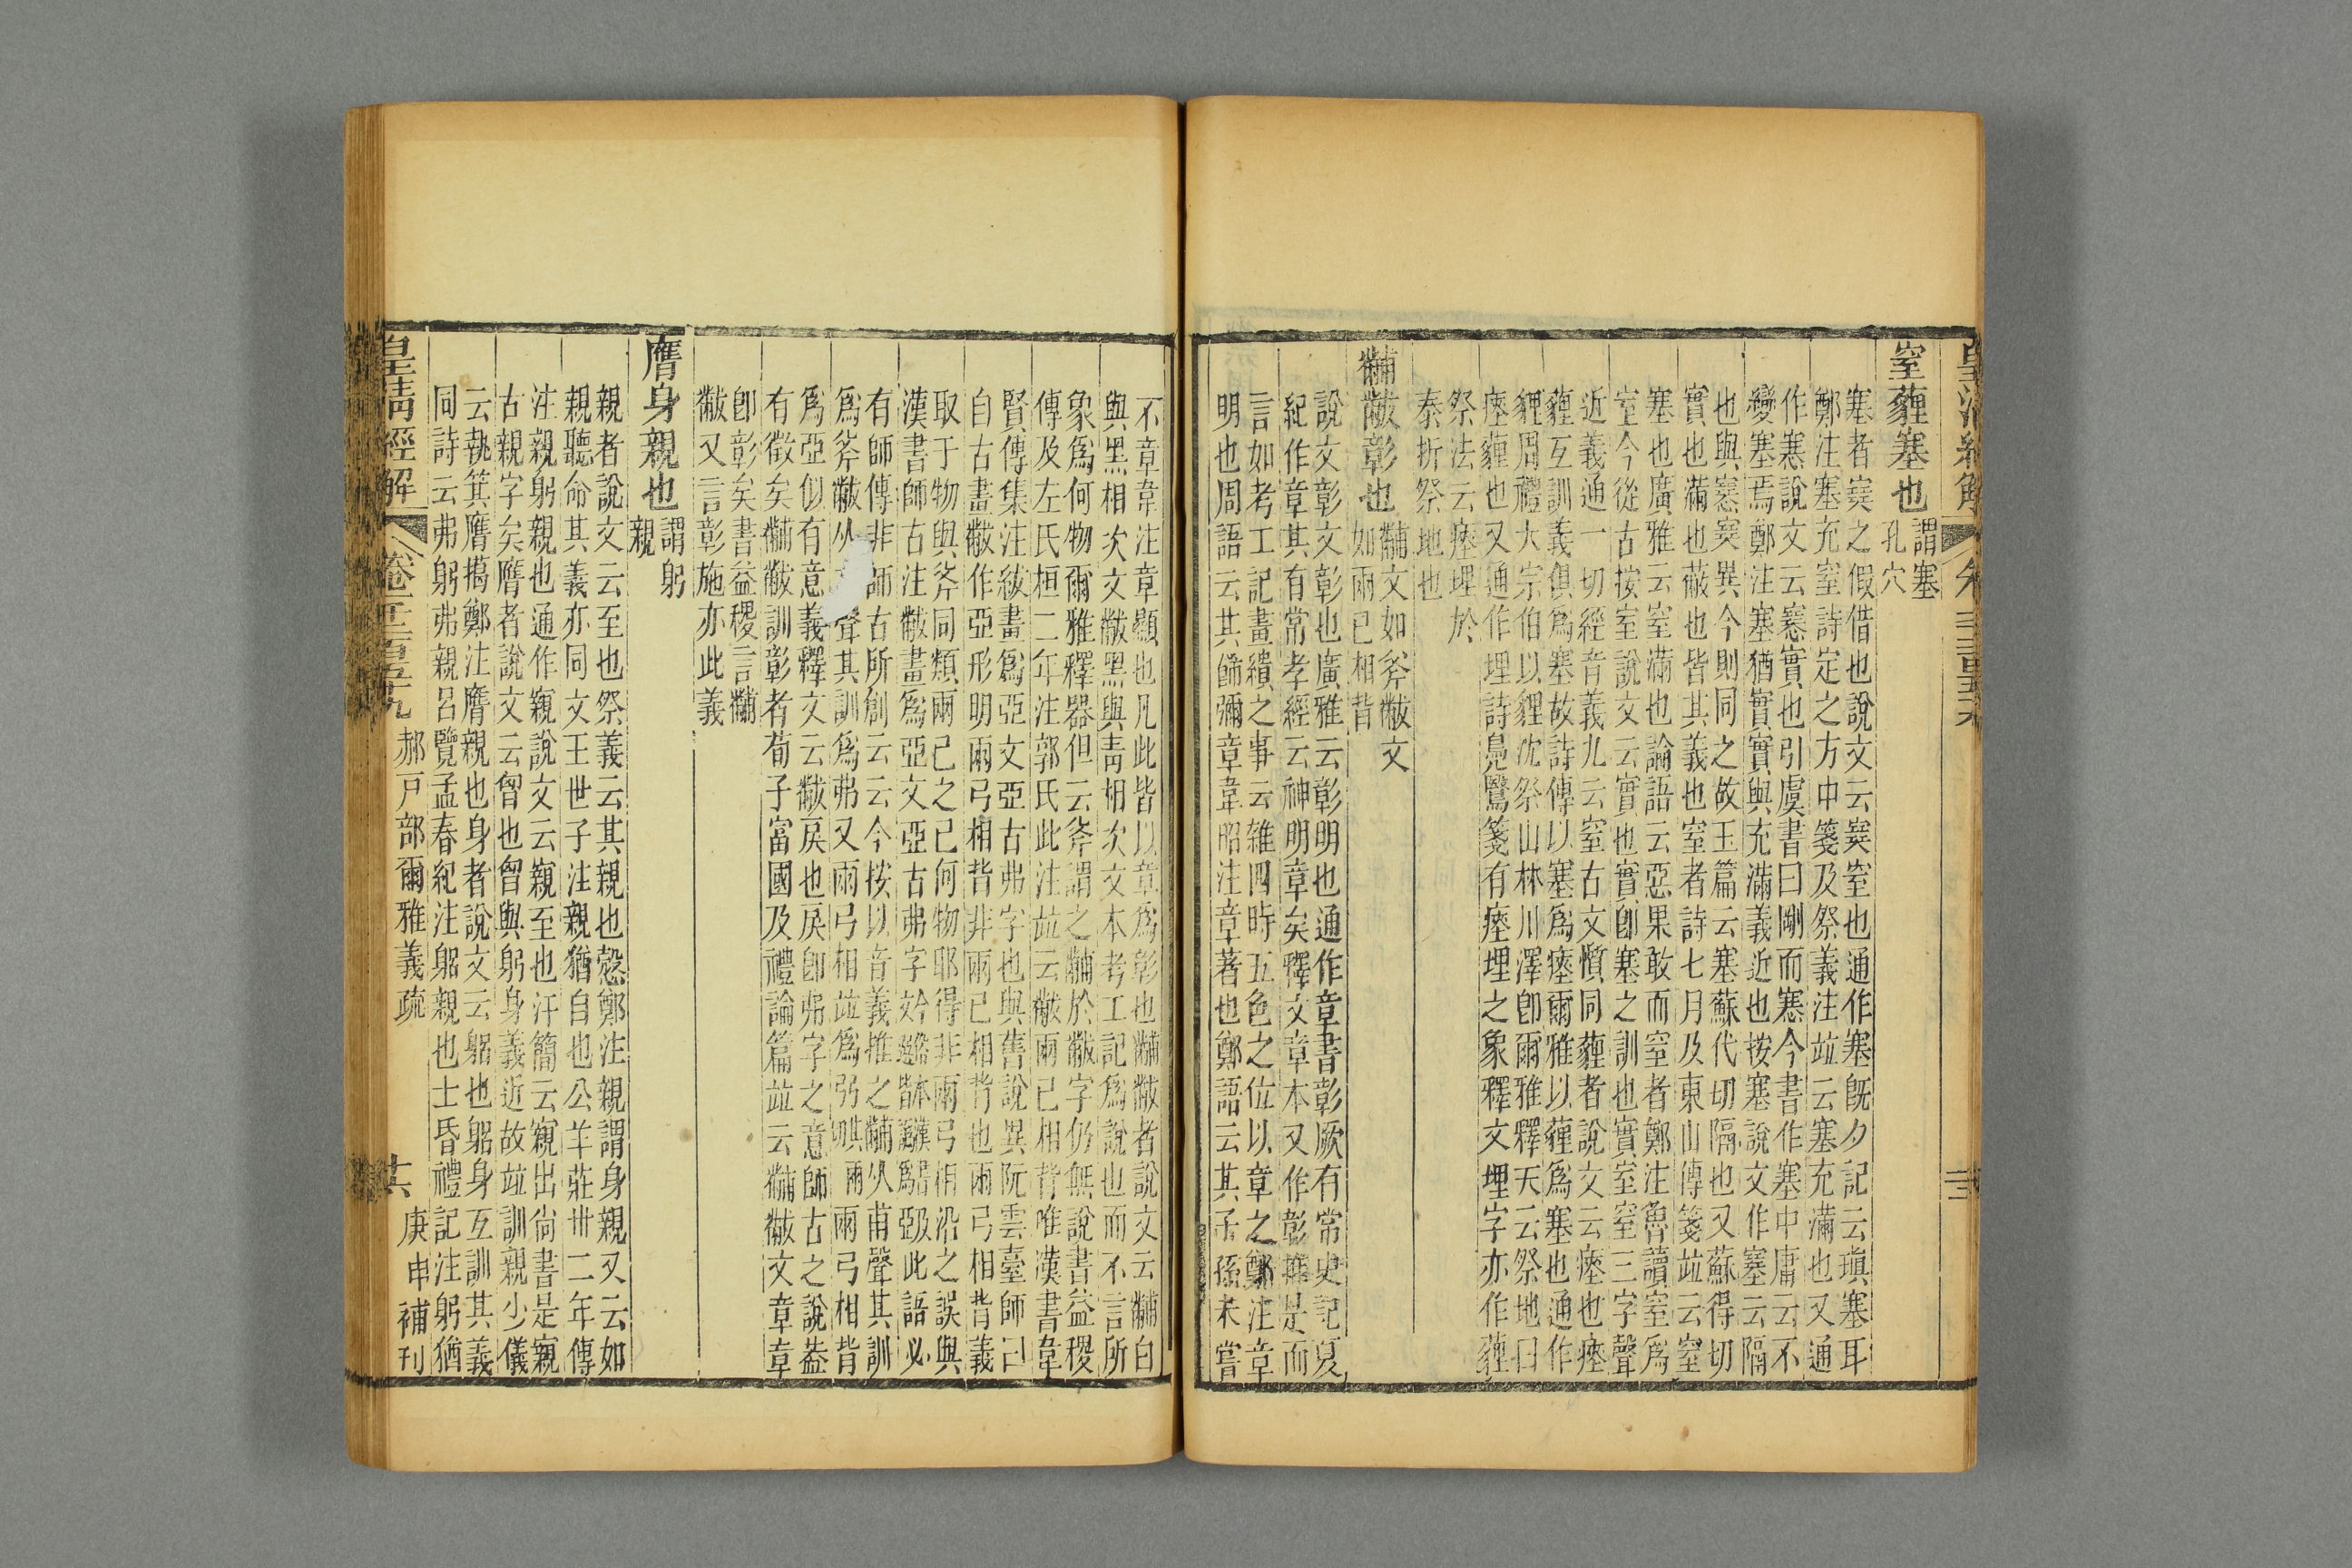 窒薶塞也謂塞孔穴
塞者㝨之假借也說文云㝨窒也通作塞旣夕記云瑱塞耳
鄭注塞充窒詩定之方中箋及祭義注竝云塞充滿也又通
作㥶說文云㥶實也引虞書曰剛而塞今書作塞中庸云不
變塞焉鄭注塞猶實實與充滿義近也按塞說文作塞云隔
也與㥶㝨異今則同之故玉篇云塞蘇代切隔也又蘇得切
實也滿也蔽也皆其義也窒者詩七月及東山傳箋竝云窒
塞也廣雅云窒滿也論語云惡果敢而窒者鄭注魯讀窒爲
室今從古按室說文云實也實卽塞之訓也實室窒三字聲
近義通一切經音義九云窒古文懫同薶者說文云瘞也瘞
薶互訓義俱爲塞故詩傳以塞爲瘞爾雅以薶爲塞也通作
貍周禮大宗伯以貍沈祭山林川澤卽爾雅釋天云祭地曰
瘞薶也又通作埋詩鳧鷖箋有瘞埋之象釋文埋字亦作薶
祭法云瘞埋於
泰折祭地也
黼黻彰也黼文如斧黻文如兩已相背
說文彰文彰也廣雅云彰明也通作章書彰厥有常史記夏
紀作章其有常孝經云神明章矣釋文章本又作彰推是而
言如考工記畫繢之事云雜四時五色之位以章之鄭注章
明也周語云其飾彌章韋昭注章著也鄭語云其子孫未嘗
不章韋注章顯也凡此皆以章爲彰也黼黻者說文云黼白
與黑相次文黻黑與靑相次文本考工記爲說也而不言所
象爲何物爾雅釋器但云斧謂之黼於黻字仍無說書益稷
傳及左氏桓二年注郭氏此注竝云黻兩已相背唯漢書韋
賢傳集注紱畫爲亞文亞古弗字也與舊說異阮雲臺師曰
自古畫黻作亞形明兩弓相背非兩已相背也兩弓相背義
取于物與斧同類兩已之已何物耶得非兩弓相沿之誤與
漢書師古注黻畫爲亞文亞古弗字此語必
有師傳非師古所創云云今按以音義推之黼从甫聲其訓
爲斧黻从聲其訓爲弗又兩弓相竝爲弜兩弓相背
爲亞似有意義釋文云黻戾也戾卽弗字之意師古之說葢
有徵矣黼黻訓彰者荀子富國及禮論篇竝云黼黻文章章
卽彰矣書益稷言黼
黻又言彰施亦此義
膺身親也謂躬親
親者說文云至也祭義云其親也慤鄭注親謂身親又云如
親聽命其義亦同文王世子注親猶自也公羊莊卅二年傳
注親躬親也通作寴說文云寴至也汗簡云寴出尙書是寴
古親字矣膺者說文云匈也匈與躬身義近故竝訓親少儀
云執箕膺擖鄭注膺親也身者說文云躳也躳身互訓其義
同詩云弗躬弗親呂覽孟春紀注躳親也士昏禮記注躬猶
皇淸經解
卷千二百五十九
郝戸部爾雅義疏
庚申補刊